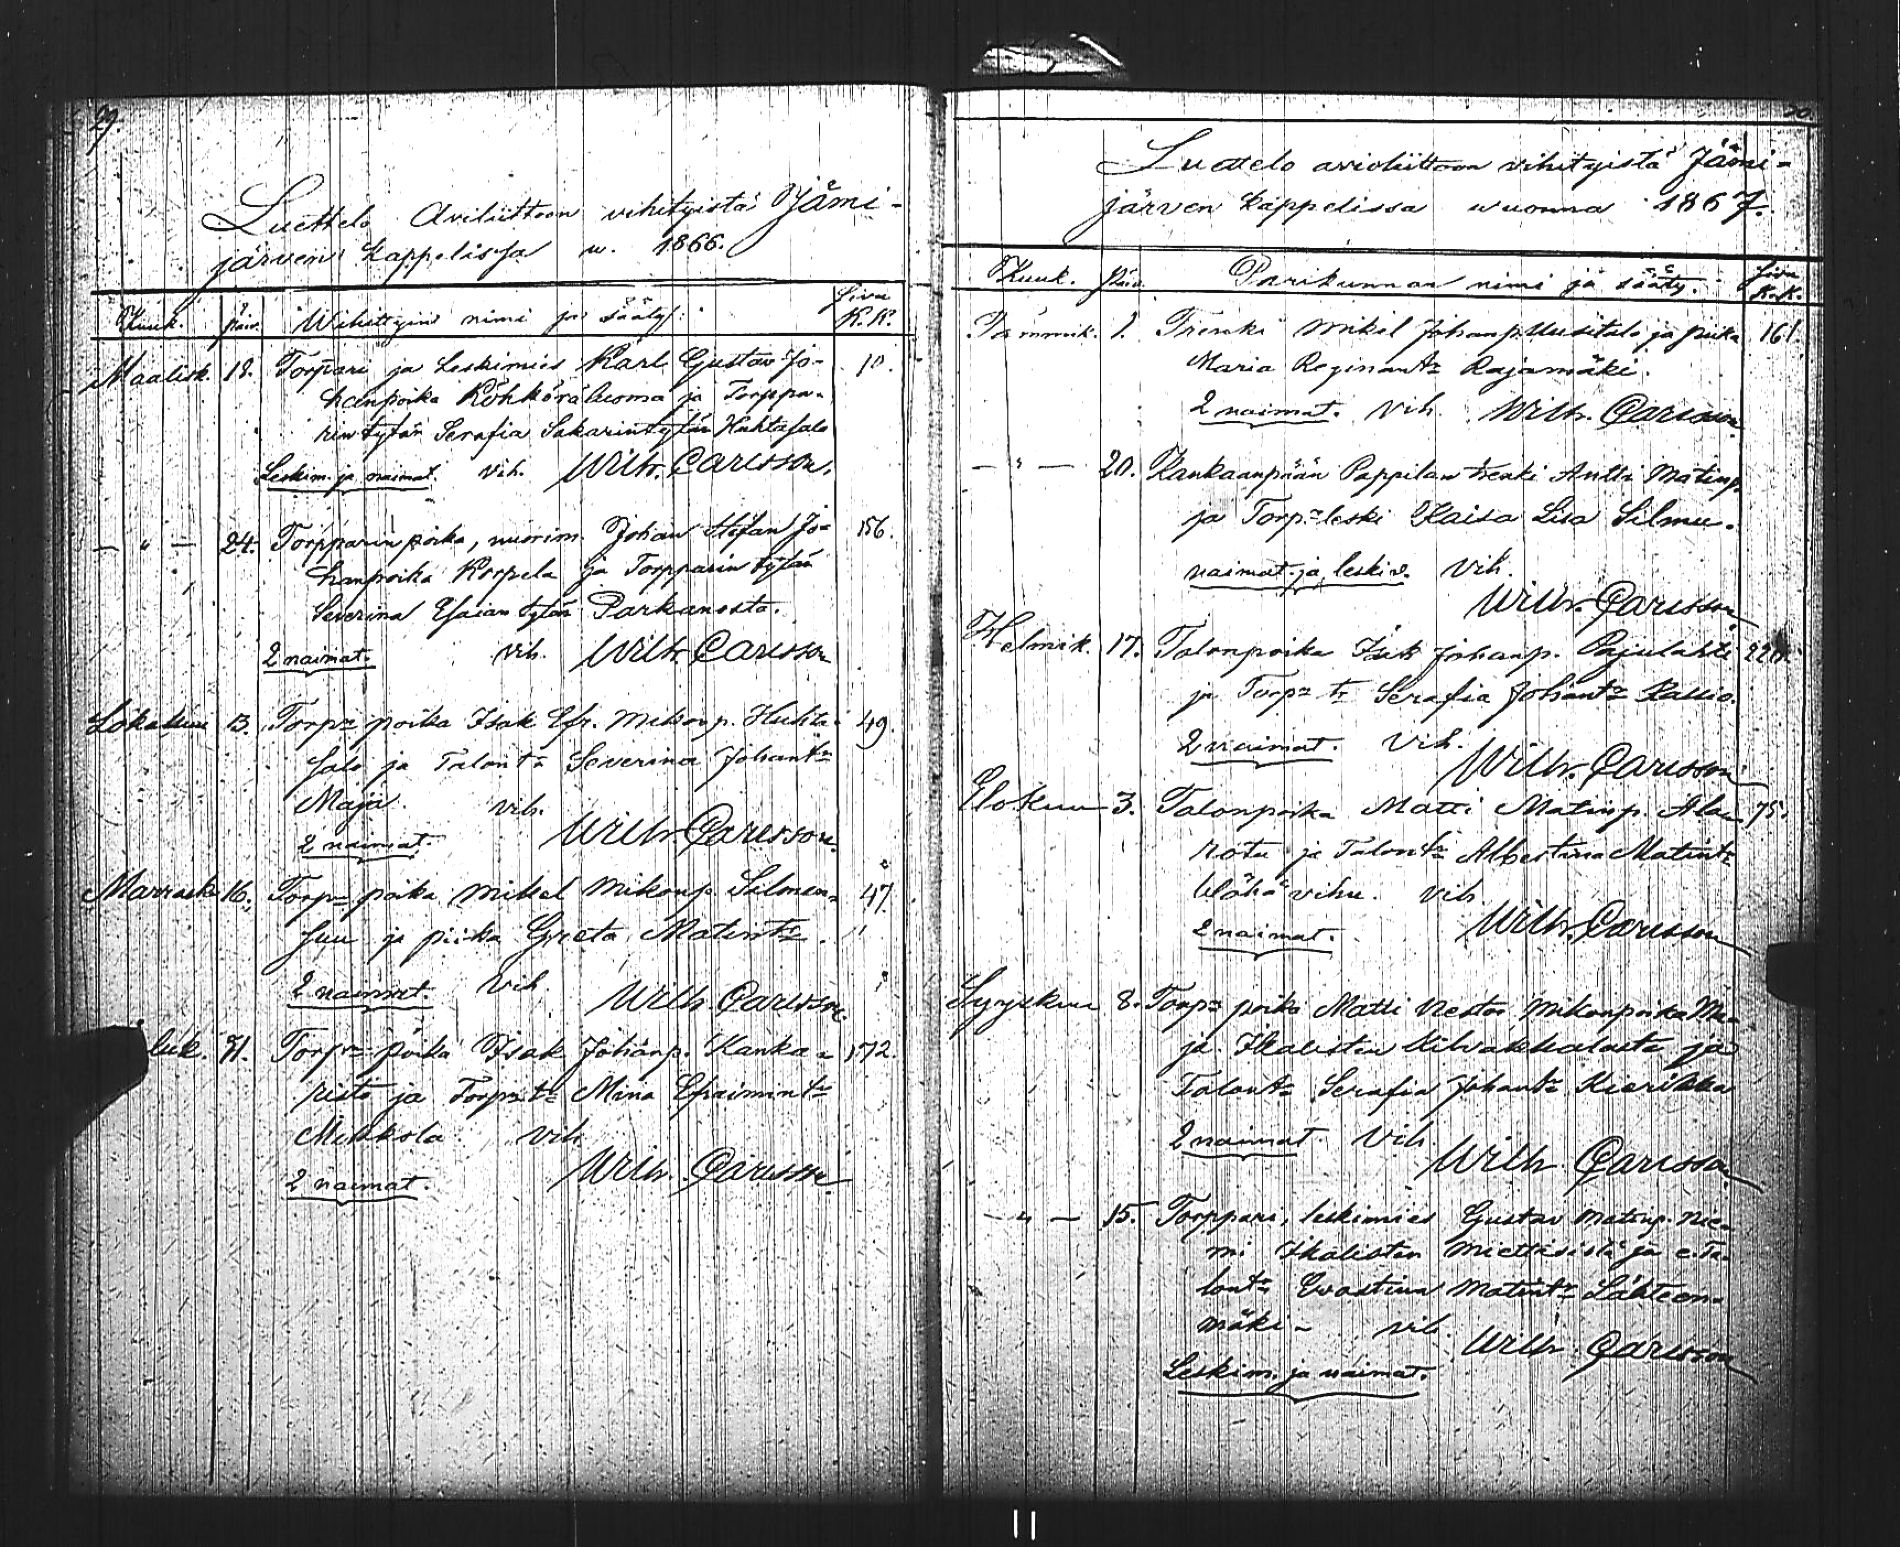 29.
Luettelo Aviliittoon vihityistä Jämi-
järven kappelissa w. 1866.
Kuuk. Päiv. Wihittyin nimi ja sääty. Sivu K.K.
Maalisk. 18. Torpari ja Leskimies Karl Gustav Jo- 10.
hanpoika Köhköräluoma ja Torppa-
rin tytär Serafia Sakarintytär Huhtasalo
Leskim. ja naimat. vih. Wilh. Carlsson.
— " — 24. Torpparin poika, nuorim. Johan Stefan Jo- 156.
hanpoika Korpela ja Torpparin tytär
Severina Esaian tytär Parkanosta.
2 naimat. vih. Wilh. Carlsson
Lokakuu 13. Torpn poika Isak Efr. Mikonp. Huhta- 49.
salo ja Talon tr Severina Johantr
Maja vih.
2 naimat. Wilh. Carlsson.
Marrask. 16. Torpn poika Mikel Mikonp. Salmen- 47.
suu ja piika Greta Matintr.
2 naimat. Vih. Wilh. Carlsson.
luk. 31. Torpn poika Isak Johanp. Kanka- 172.
risto ja Torpn tr Mina Efraimintr
Mikkola. Vih.
2 naimat. Wilh. Carlsson.
30.
Luettelo avioliittoon vihityistä Jämi-
järven kappelissa wuonna 1867.
Kuuk. Päiv. Parikunnan nimi ja sääty. Sivu K.K.
Tammik. 1. Trenki Mikel Johanp. Uusitalo ja piika 161.
Maria Reginantr Rajamäki.
2 naimat. Vih. Wilh. Carlsson
— " — 20. Kankaanpään Pappilan trenki Antti Matinp.
ja Torpn leski Kaisa Lisa Silmu.
naimat. ja leskiv. Vih.
Wilh. Carlsson
Helmik. 17. Talonpoika Isak Johanp. Pajulahti 220.
ja Torpn tr Serafia Johantr Kallio.
2 naimat. Vih.
Wilh. Carlsson
Elokuu 3. Talonpoika Matti Matinp. Alan- 75.
ja Talontr Albertina Matintr
Wähävihu. Vih.
2 naimat. Wilh. Carlsson
Syyskuu 8. Torpn poika Matti Nestor Mikonpoika
ja
Talontr Serafia Johantr Kierikka
2 naimat. Vih.
Wilh. Carlsson
— " — 15. Torppari, leskimies Gustav Matinp. Nie-
mi Ikalisten Miettisistä ja e. Ta-
lontr Evastina Matintr Lähteen-
mäki - vih.
Wilh. Carlsson
Leskim. ja naimat.
11